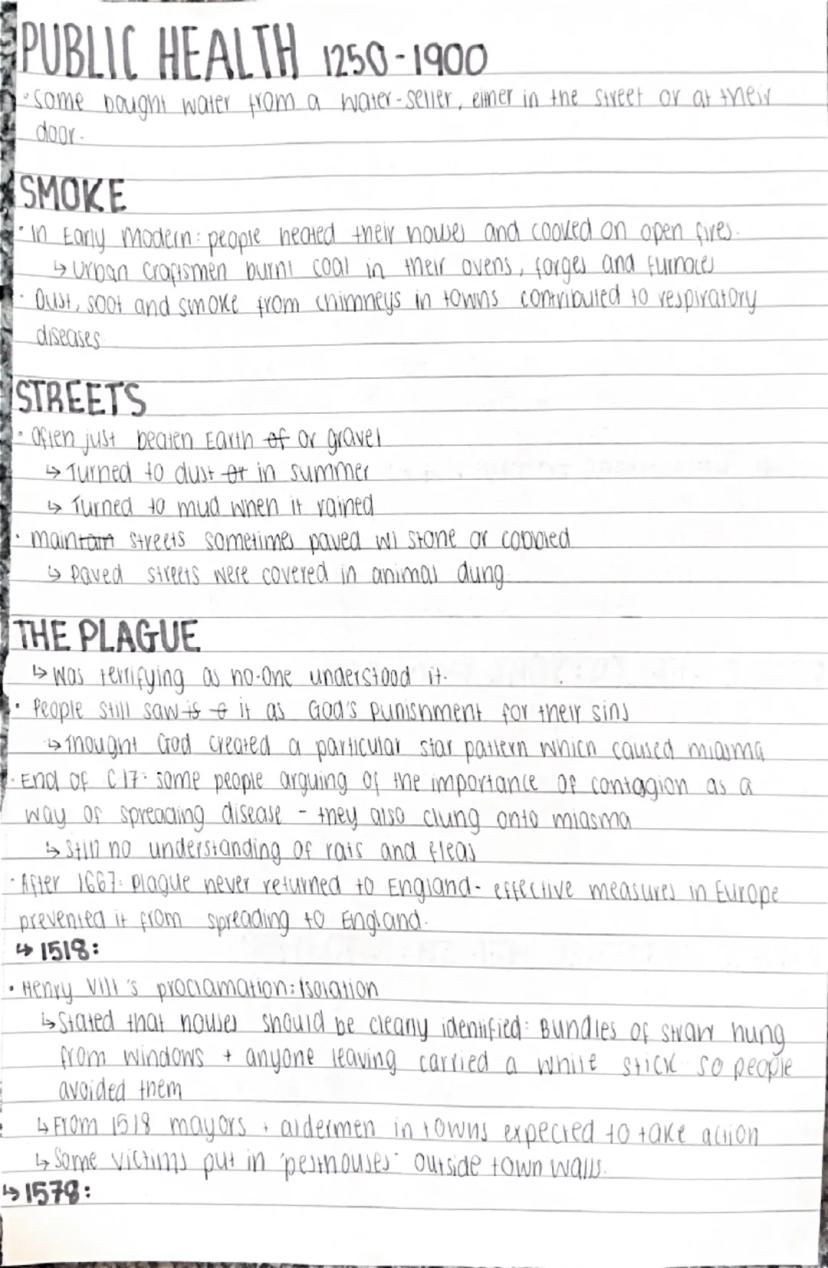 PUBLIC HEALTH 1250-1900
· Some bought water from a water-seller, either in the street or at their
door.
SMOKE
· In Early Modern: people heated their houses and cooked on open fires.
↳ Urban craftsmen burnt coal in their ovens, forges and furnaces
· Dust, soot and smoke from chimneys in towns contributed to respiratory
diseases
STREETS
· Often just beaten Earth of or gravel
↳ Turned to dust or in summer
↳ Turned to mud when it rained
· maintain streets sometimes paved w/ stone or cobbled
↳ Paved streets were covered in animal dung.
THE PLAGUE
↳ Was terrifying as no-one understood it.
· People still saw is a it as God's Punishment for their sins
↳ Thought God created a particular star pattern which caused miasma
· End of C17: some people arguing of the importance of contagion as a
way of spreading disease - they also clung onto miasma
↳ Still no understanding of rats and fleas
· After 1667: Plague never returned to England - effective measures in Europe
prevented it from spreading to England.
↳ 1518:
· Henry VIII's proclamation: Isolation
↳ Stated that houses should be clearly identified: Bundles of straw hung
from windows + anyone leaving carried a white stick so people
avoided them
↳ From 1518 mayors + aldermen in towns expected to take action
↳ Some victims put in 'pesthouses' outside town walls.
↳ 1578: